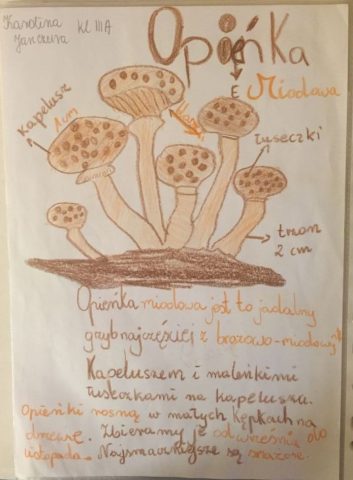 Karolina kl IIIA
Janczura
Opieńka
E Miodowa
kapelusz
1 cm
łuseczki
trzon
2 cm
Opieńka miodowa jest to jadalny
grzyb najczęściej z brązowo-miodowym
Kapeluszem i maleńkimi
łuseczkami na kapeluszu.
Opieńki rosną w małych kępkach na
drzewie. Zbieramy je od września do
listopada. Najsmaczniejsze są smażone.